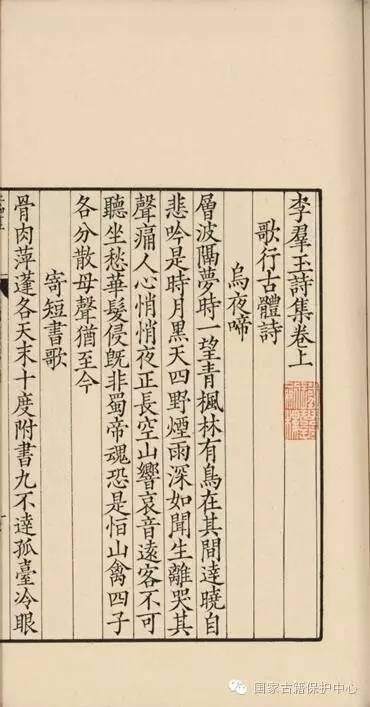 李羣玉詩集卷上
歌行古體詩
烏夜啼
層波隔夢時一望青楓林有鳥在其間達曉自
悲吟是時月黑天四野煙雨深如聞生離哭其
聲痛人心悄悄夜正長空山響哀音遠客不可
聽坐愁華髮侵旣非蜀帝魂恐是恒山禽四子
各分散母聲猶至今
寄短書歌
骨肉萍蓬各天末十度附書九不達孤臺冷眼
国家古籍保护中心